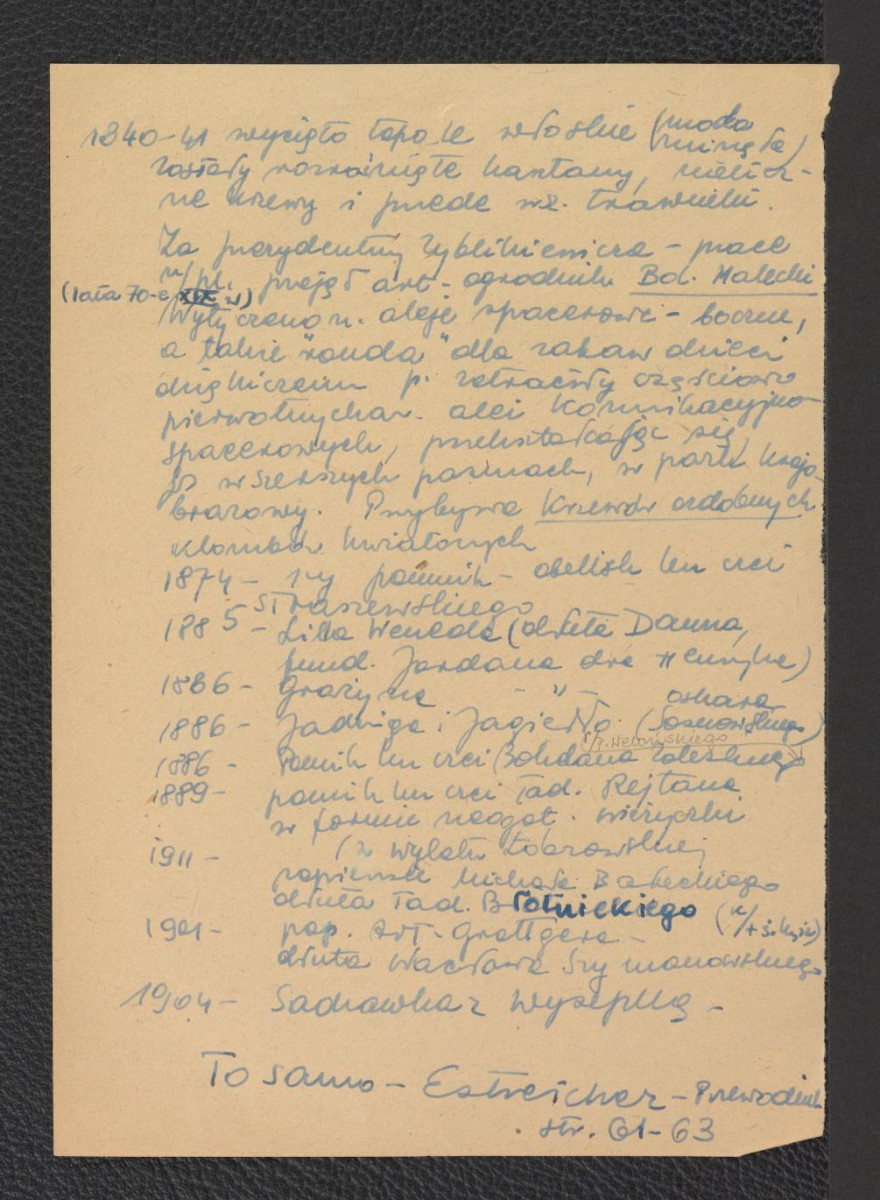 1840-41 wycięto topole włoskie (moda
minęła)
zostały rozrośnięte kasztany, nielicz-
ne krzewy i przede wsz. trawniki.
Za prezydentury Zyblikiewicza - prace
n/pl. przejął art-ogrodnik Bol. Malecki
(lata 70-e XIX w)
Wytyczono n. aleje spacerowe - boczne,
a także "ronda" dla zabaw dzieci
dzięki czemu p. zatraciły częściowo
pierwotny char. alei komunikacyjno-
spacerowych, przekształcając się,
w szerszych pasmach, w park krajo-
brazowy. Przybywa Krzewów ozdobnych
klombów kwiatowych
1874 - 1-y pomnik - obelisk ku czci
Straszewskiego
1885 - Lilla Weneda (dłuta Dauna,
fund. Jordana dra Henryka)
1886 - Grażyna - " -
1886 - Jadwiga i Jagiełło (Oskara
Sosnowskiego)
1886 - Pomnik ku czci Bohdana Zaleskiego
1889 - pomnik ku czci Tad. Rejtana
w formie neogot. wieżyczki
1911 - (z wylotu Łobzowskiej
popiersie Michała Bałuckiego
dłuta Tad. Błotnickiego
1901 - pop. Art. Grottgera -
dłuta Wacława Szymanowskiego
1904 - Sadzawka z wysepką -
To samo - Estreicher - Przewodnik
str. 61-63